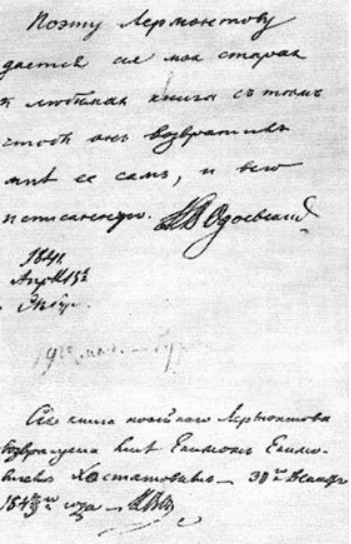 Поэту Лермонтову
дается сія моя старая
и любимая книга съ тѣмъ
чтобъ онъ возвратилъ
мнѣ ее самъ, и всю
исписанную. К В Одоевский
1841.
Апрѣля 13
Сія книга покойнаго Лермонтова
возвращена мнѣ Екимомъ Екимо-
вичемъ Хостатовымъ — 30го Декабря
1843го года —